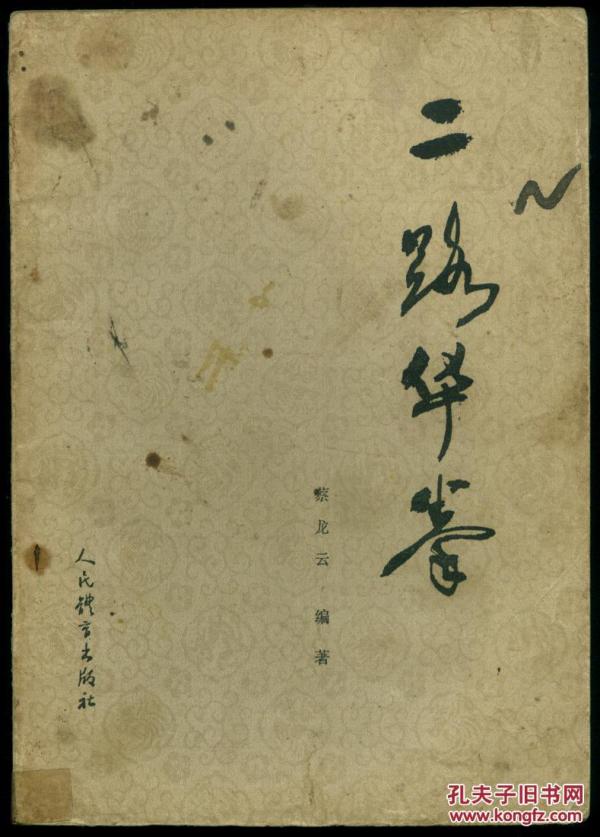 二路华拳
蔡龙云 编著
人民體育出版社
孔夫子旧书网
www.kongfz.com